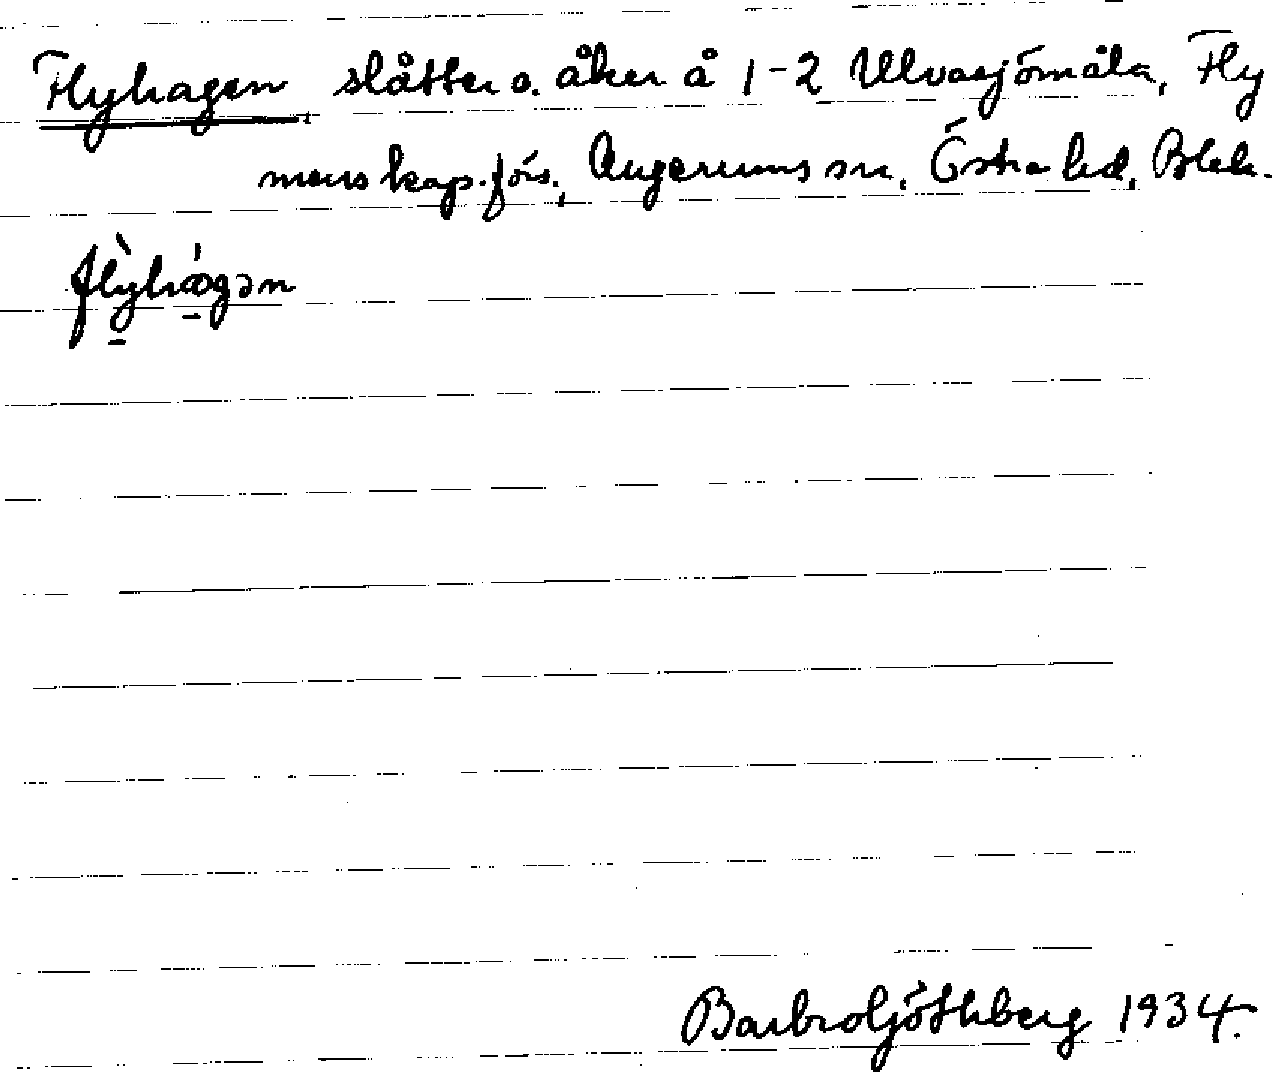 Flyhagen slåtter o. åker å 1-2 Ulvasjömåla, Fly
menskap. förs., Augerums sn, Östra hd, Blek.
Barbro Ljöthberg 1934.